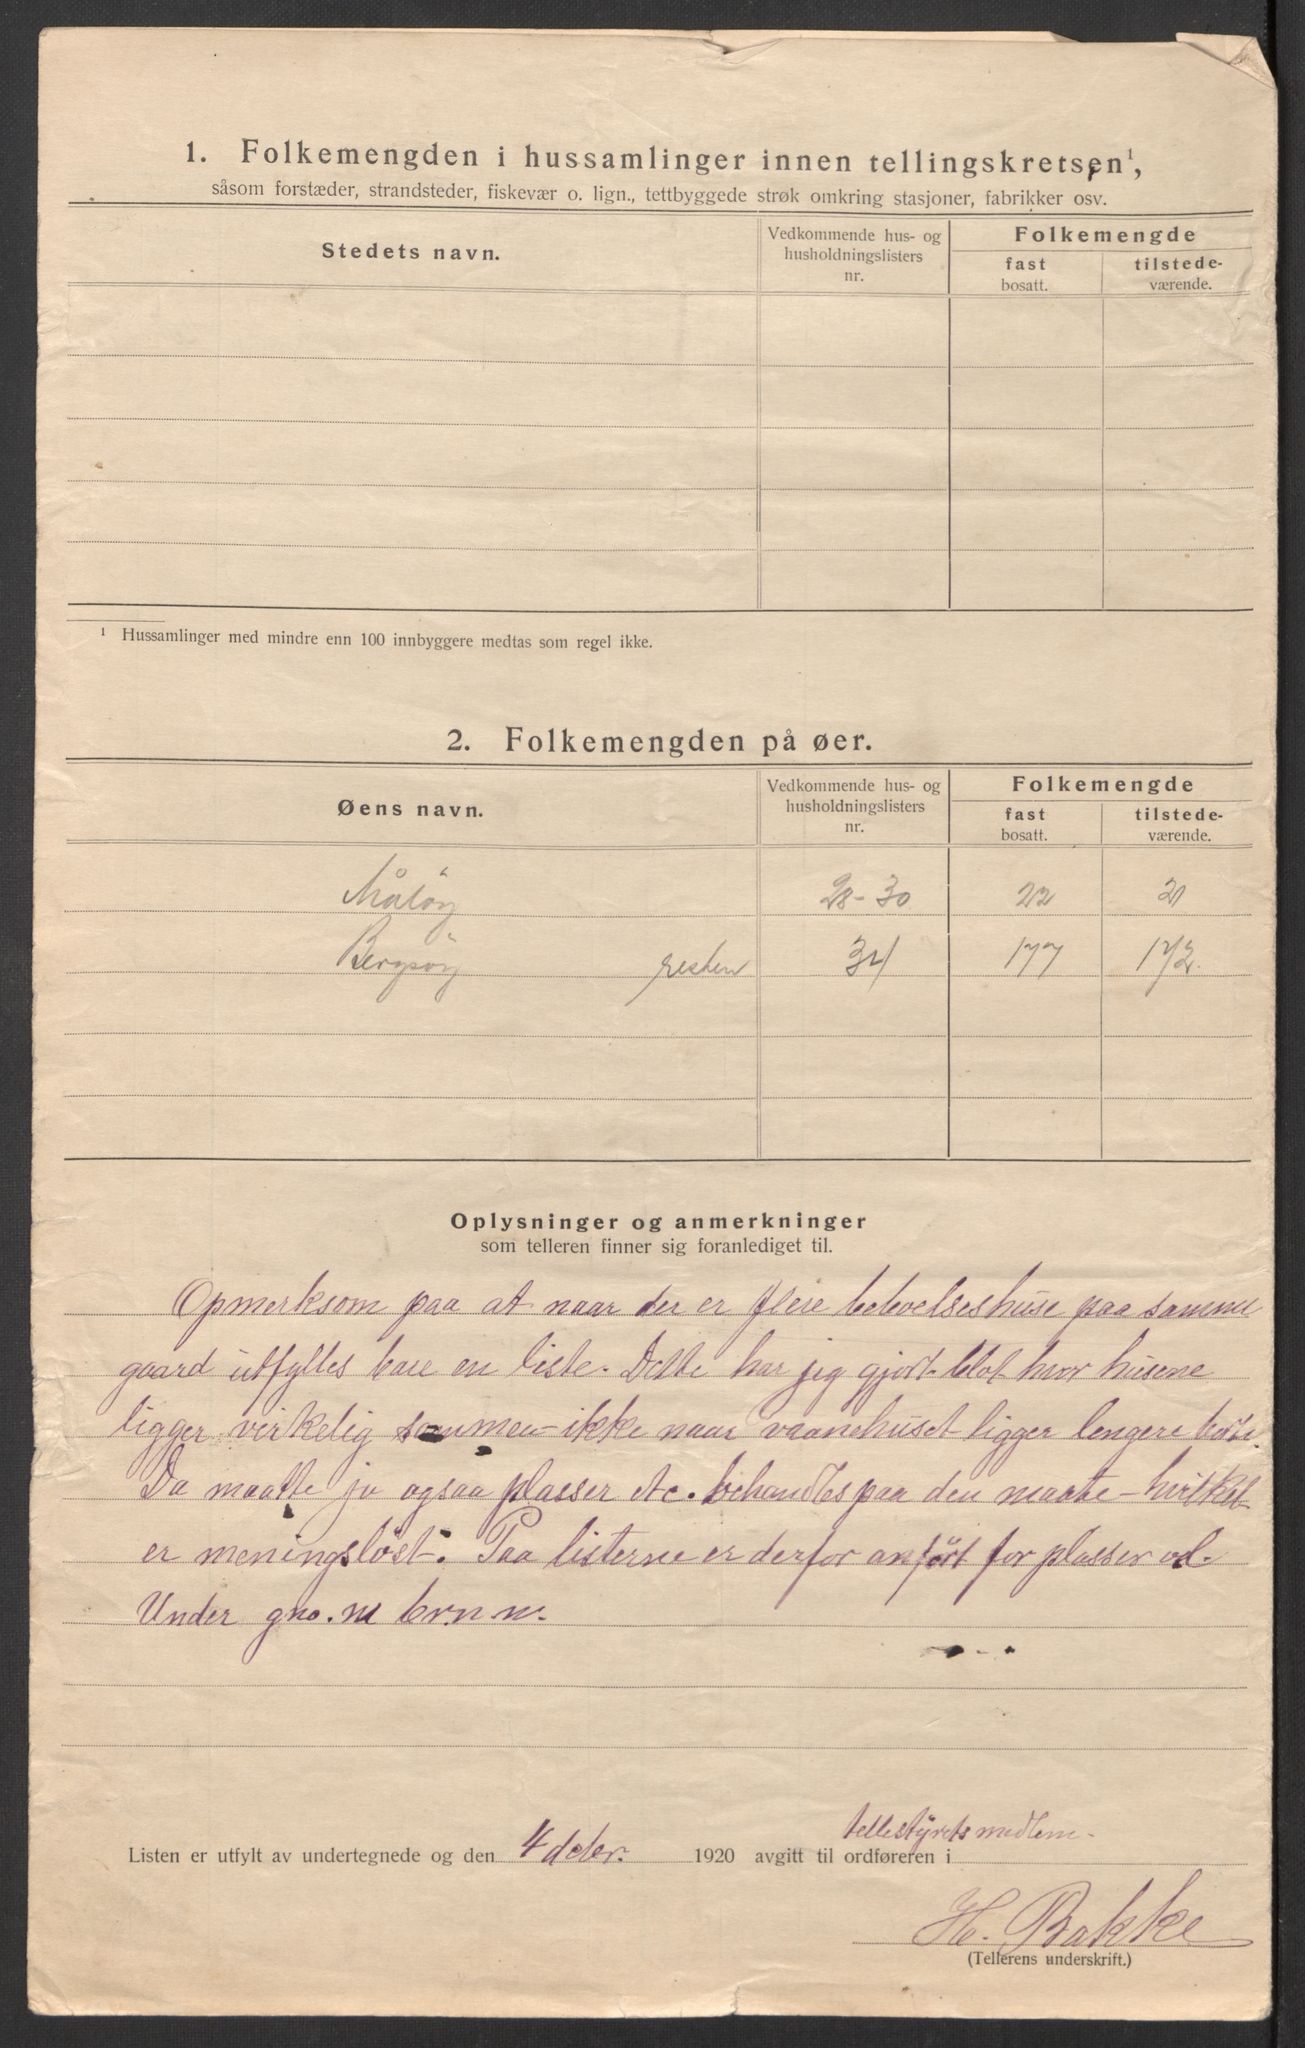 1. Folkemengden i hussamlinger innen tellingskretsen¹,
såsom forstæder, strandsteder, fiskevær o. lign., tettbyggede strøk omkring stasjoner, fabrikker osv.
Stedets navn.
Vedkommende hus- og husholdningslisters nr.
Folkemengde
fast bosatt.
tilstede-værende.
¹ Hussamlinger med mindre enn 100 innbyggere medtas som regel ikke.
2. Folkemengden på øer.
Øens navn.
Vedkommende hus- og husholdningslisters nr.
Folkemengde
fast bosatt.
tilstede-værende.
Måløy 28-30 22 21
Bergsöy resten 34 177 172
Oplysninger og anmerkninger
som telleren finner sig foranlediget til.
Opmerksom paa at naar der er flere beboelseshuse paa samme
gaard utfylles bare en liste. Dette har jeg gjort blot hvor husene
ligger virkelig sammen - ikke naar vaanehuset ligger lengere borte.
Da maatte jo ogsaa plasser etc. behandles paa den maate - hvilket
er meningsløst. Paa listerne er derfor anført for plasser od.
Under gno. m brn. n.
Listen er utfylt av undertegnede og den 4 dcbr. 1920 avgitt til ordføreren i tellestyrets medlem.
H. Bakke
(Tellerens underskrift.)